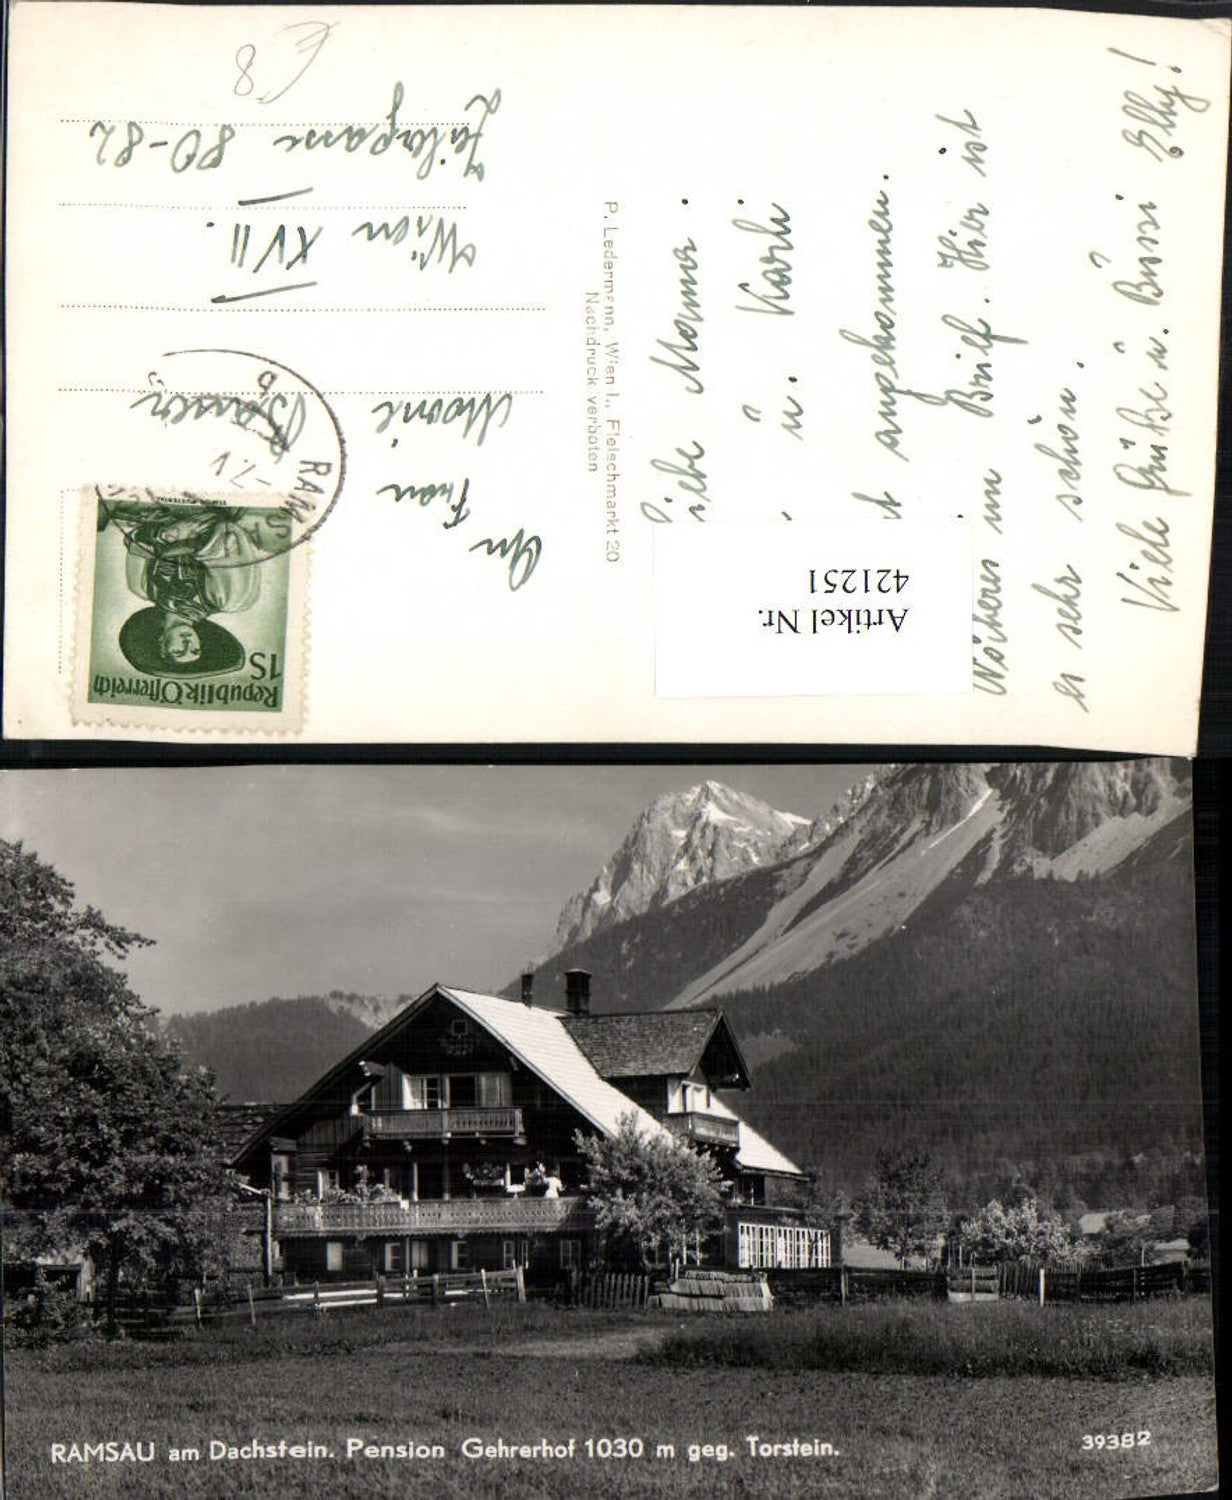 € 8
An
Frau
Marie
Wien XVII.
Zeilergasse 80-82
RAMSAU
-7.V
b
Republik Österreich
1S
P. Ledermann, Wien I., Fleischmarkt 20
Nachdruck verboten
Liebe Mama.
u. Karli
angekommen.
Näheres im Brief. Hier ist
es sehr schön.
Viele Grüße u. Bussi Elly!
Artikel Nr.
421251
RAMSAU am Dachstein. Pension Gehrerhof 1030 m geg. Torstein.
39382